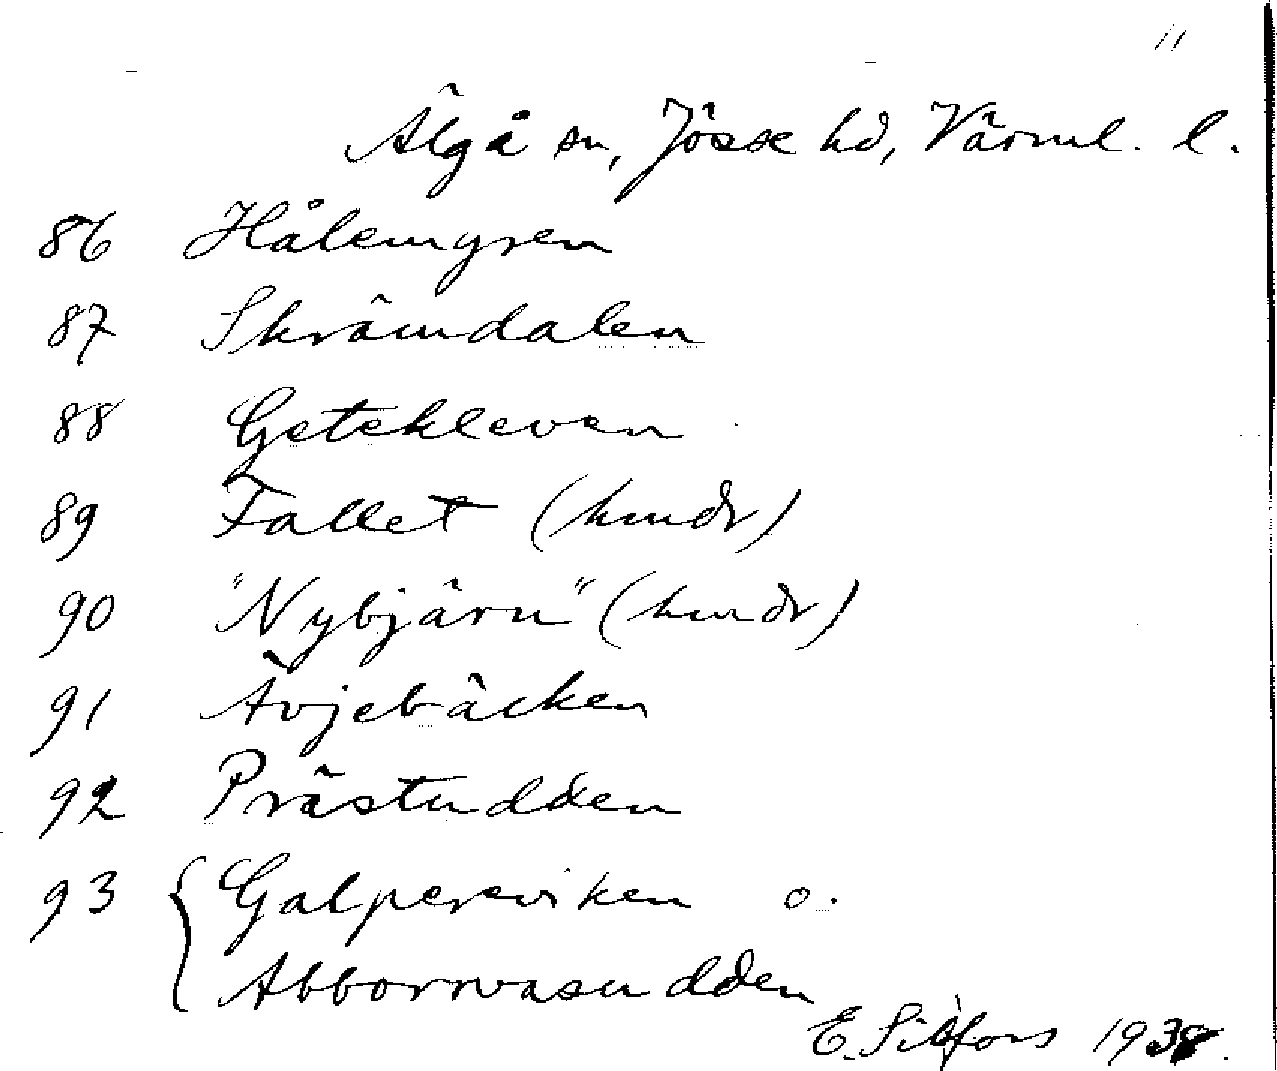 11
Älgå sn, Jösse hd, Värml. l.
86 Hålemyren
87 Skrämdalen
88 Getekleven
89 Fallet (hmdr)
90 "Nybjärn" (hmdr)
91 Ävjebäcken
92 Prästudden
93 Galpereviken o.
Abborrvasudden
E. Silfors 1938.